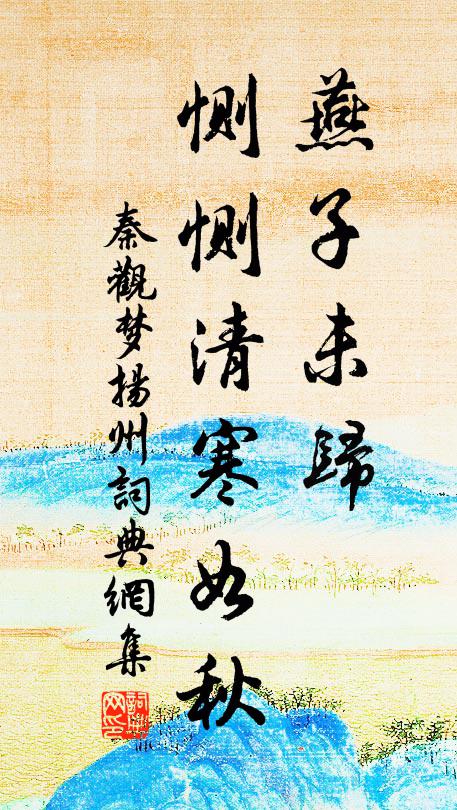 燕子未歸
惻惻清寒如秋
秦觀梦揚州詞典網集